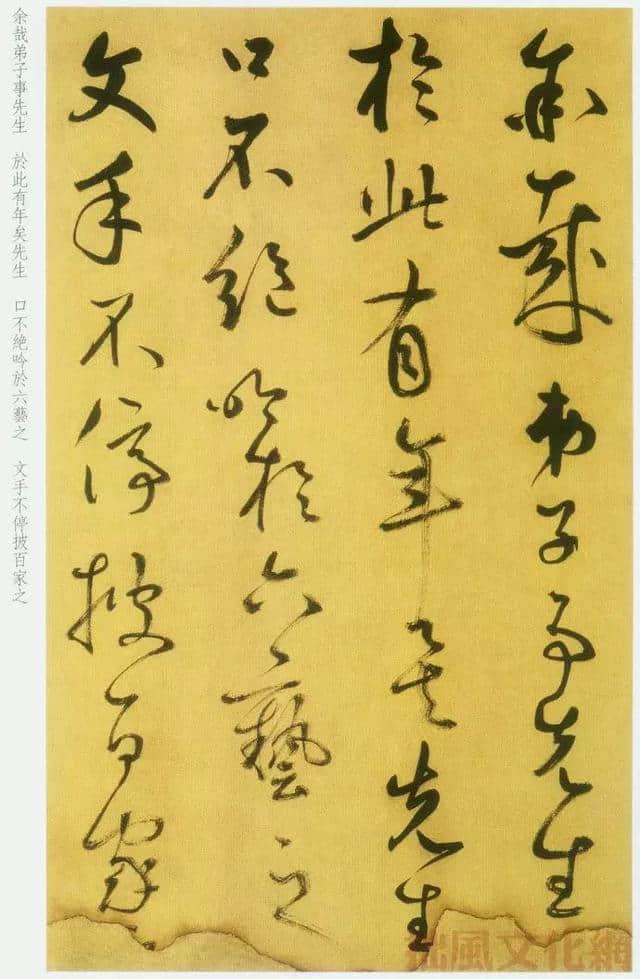 余哉弟子事先生
於此有年矣先生
口不絶吟於六藝之
文手不停披百家之
余哉弟子事先生 於此有年矣先生 口不絶吟於六藝之 文手不停披百家之
風文化網